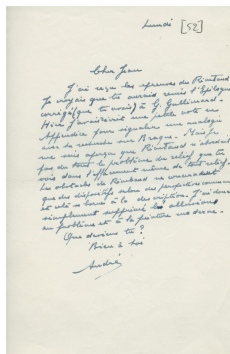 Lundi [52]
Cher Jean
J'ai reçu les épreuves de Rimbaud
Je croyais que tu aurais remis l'Epilogue
corrigé (que tu avais) à G. Gallimard.
Hier j'avais écrit une petite note en
Appendice pour signaler une analogie
avec la recherche sur Braque. Mais je
me suis aperçu que Rimbaud n'abordait
pas du tout le problème du relief que tu
vois dans l'effacement même de tout relief.
Les obstacles de Rimbaud ne commandent
que des dispositifs selon des perspectives connues
et elle se borne à la description. J'ai donc
simplement supprimé les allusions
au problème et à la peinture moderne.
Que deviens tu ?
Bien à toi
André